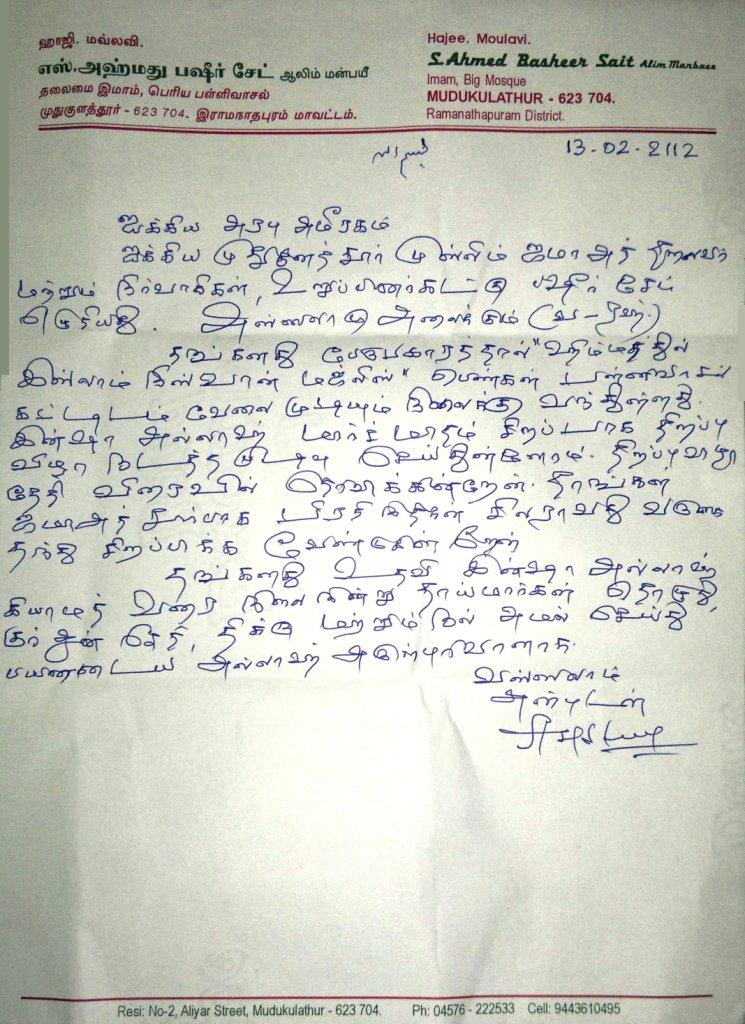 ஹாஜி. மவ்லவி.
எஸ்.அஹமது பஷீர் சேட் ஆலிம் மன்பயீ
தலைமை இமாம், பெரிய பள்ளிவாசல்
முதுகுளத்தூர் - 623 704. இராமநாதபுரம் மாவட்டம்.
Hajee. Moulavi.
S.Ahmed Basheer Sait Alim Manbaee
Imam, Big Mosque
MUDUKULATHUR - 623 704.
Ramanathapuram District.
13-02-2112
ஐக்கிய அரபு அமீரகம்
ஐக்கிய முதுகுளத்தூர் முஸ்லிம் ஜமாஅத் தலைவர்
மற்றும் நிர்வாகிகள், உறுப்பினர்கட்கு பஷீர் சேட்
எழுதியது. அஸ்ஸலாமு அலைக்கும் (வ-ரஹ்.)
தங்களது பேருபகாரத்தால்
இஸ்லாம் நிஸ்வான் மஜ்லிஸ்" பெண்கள் பள்ளிவாசல்
கட்டிடம் வேலை முடியும் நிலைக்கு வந்துள்ளது.
இன்ஷா அல்லாஹ் மார்ச் மாதம் சிறப்பாக திறப்பு
விழா நடத்த முடிவு செய்துள்ளோம். திறப்புவிழா
தேதி விரைவில் தெரிவிக்கின்றேன். தாங்கள்
ஜமாஅத் சார்பாக பிரதிநிதிகள் சிலராவது வருகை
தந்து சிறப்பிக்க வேண்டுகின்றேன்
தங்களது உதவி இன்ஷா அல்லாஹ்
கியாமத் வரை நிலைநின்று தாய்மார்கள் தொழுது,
குர்ஆன் ஓதி, திக்ரு மற்றும் நல் அமல் செய்து
பயனடைய அல்லாஹ் அருள்புரிவானாக.
வஸ்ஸலாம்
அன்புடன்
Resi: No-2, Aliyar Street, Mudukulathur - 623 704. Ph: 04576 - 222533 Cell: 9443610495